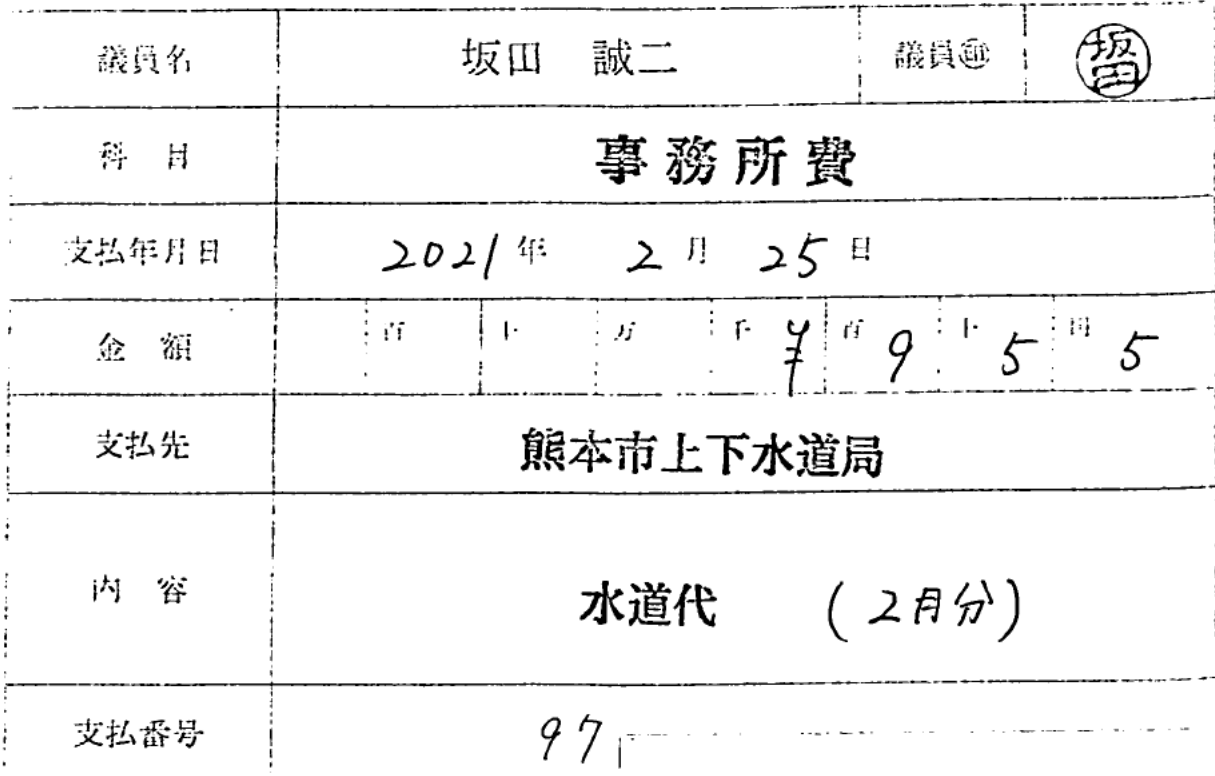 議員名 坂田 誠二 議員㊞ 坂田
科 目 事務所費
支払年月日 2021年 2月 25日
金 額 百 十 万 千 ¥ 百 9 十 5 円 5
支払先 熊本市上下水道局
内 容 水道代 (2月分)
支払番号 97